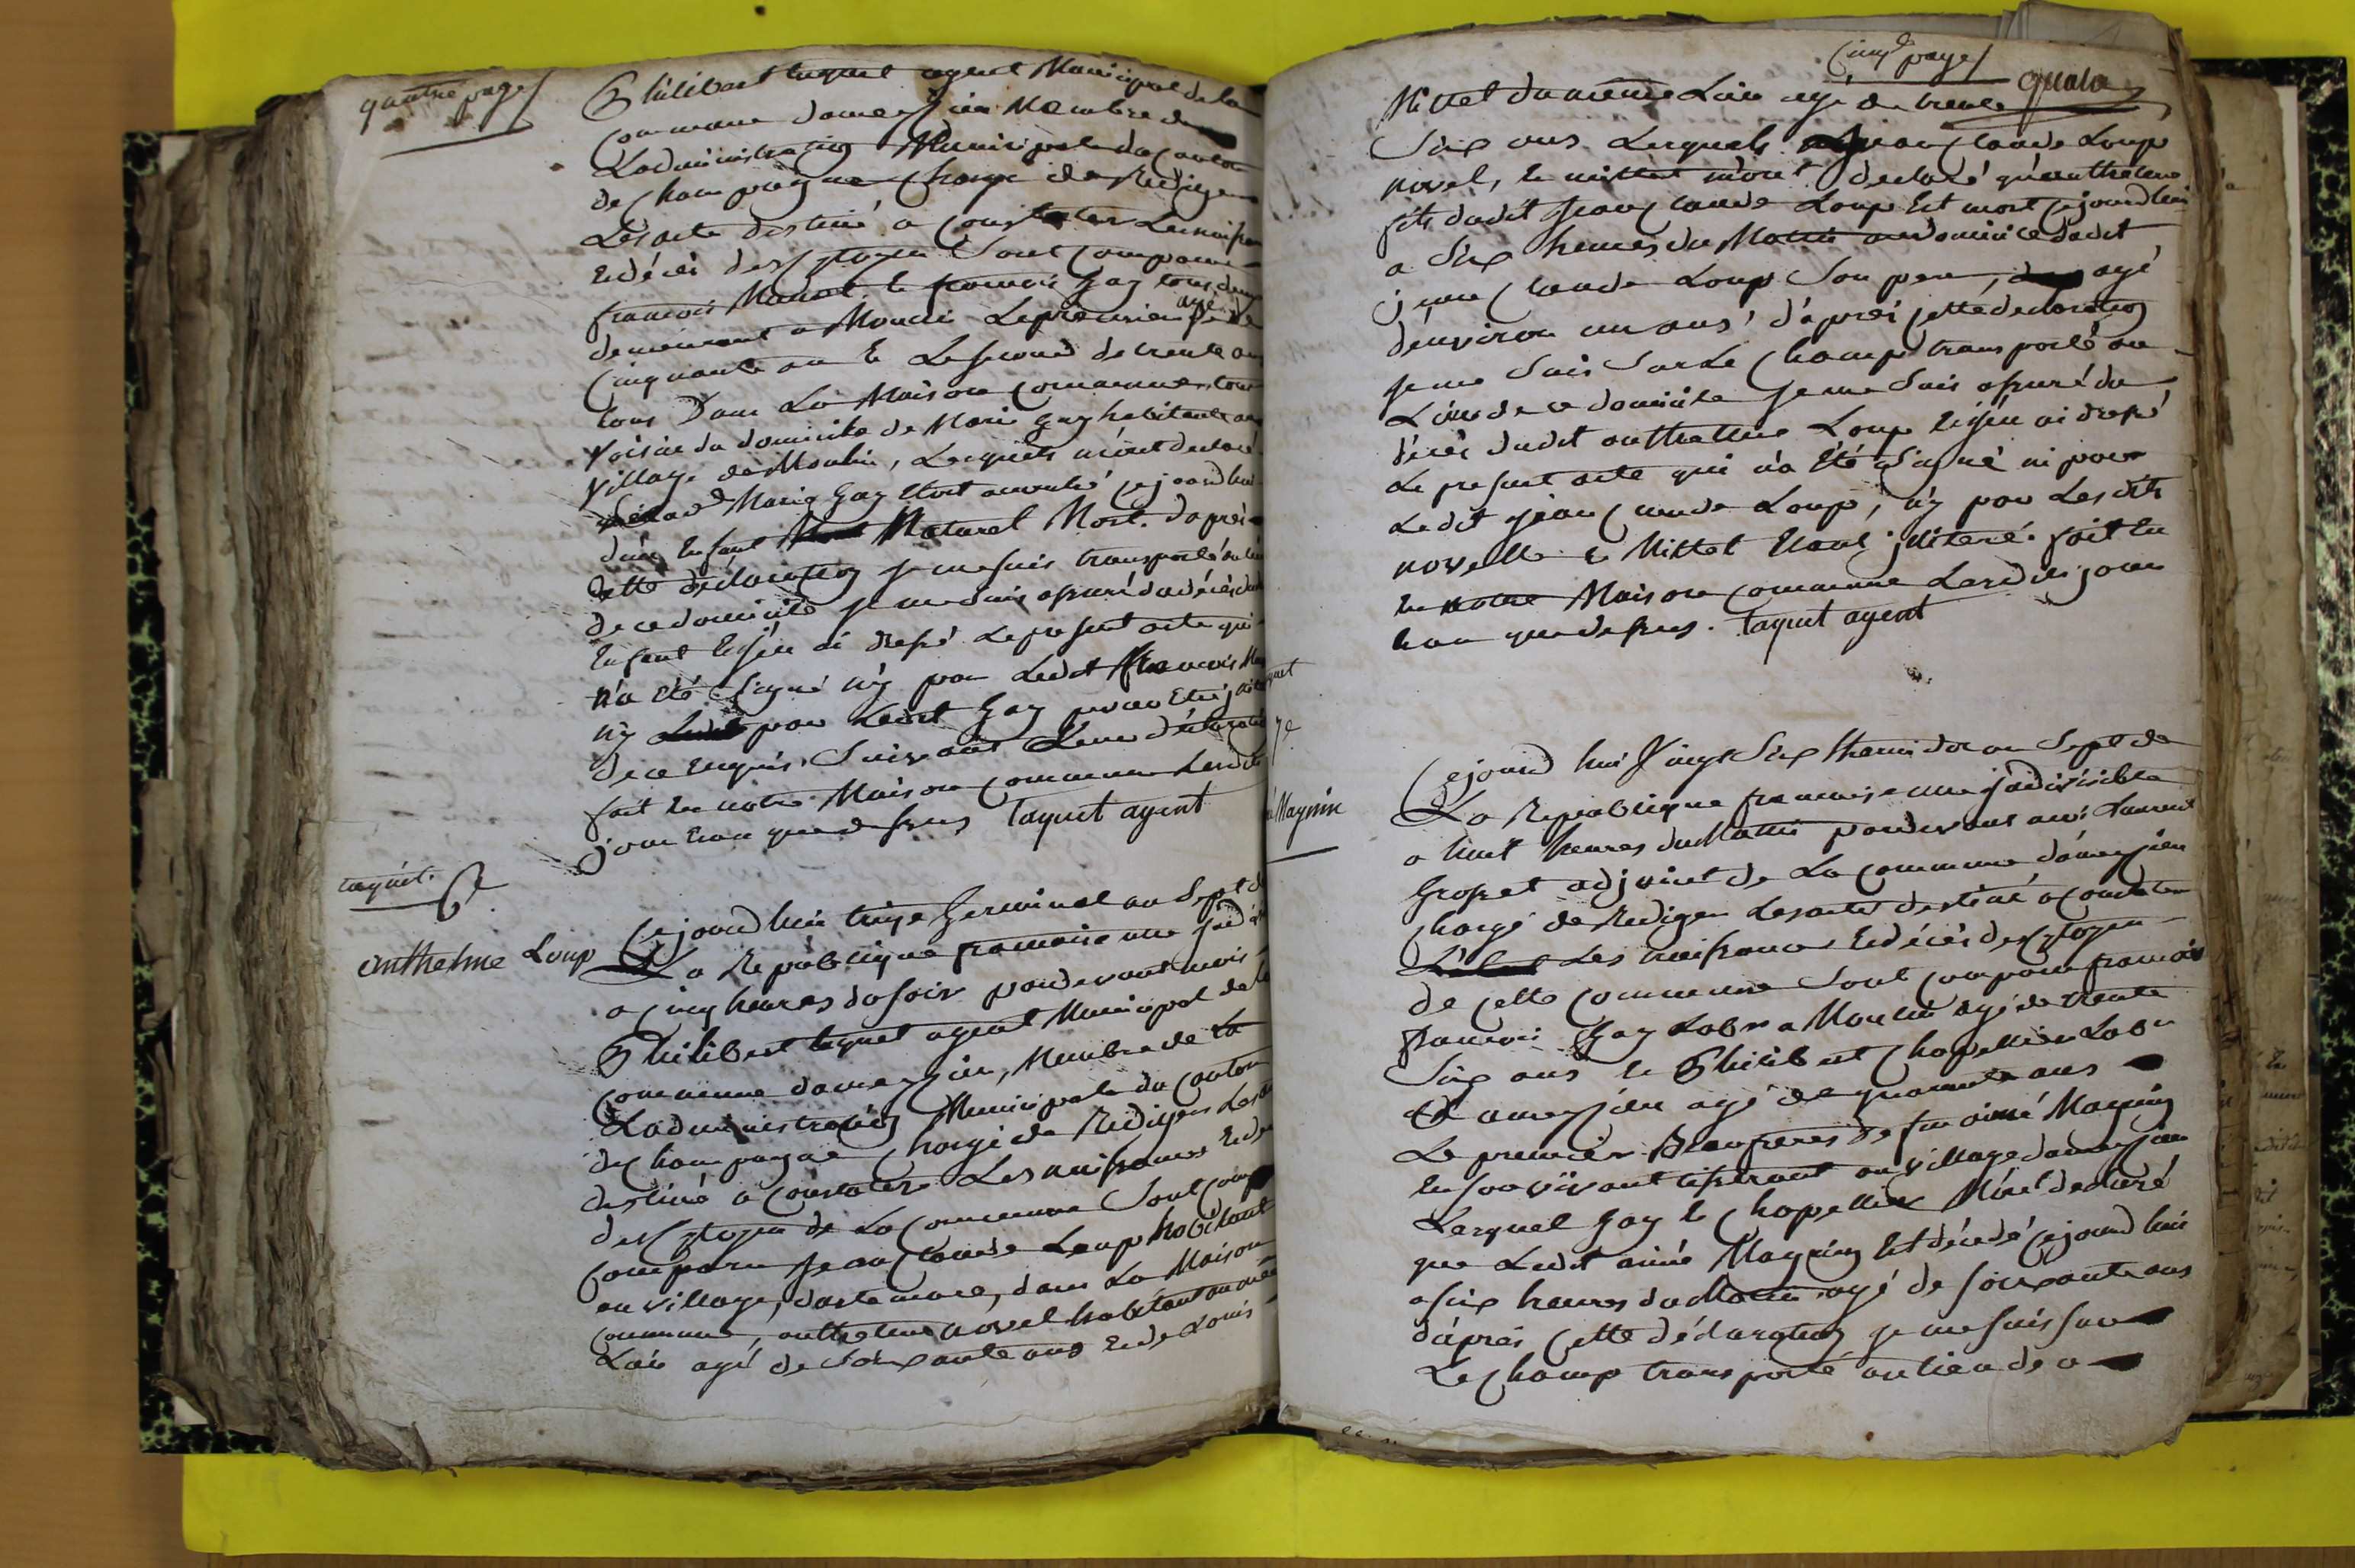 quatre page
Philibert taquet agent Municipal de la
Commune dameyzieu Membre de
Ladministration Municipale du Canton
de Champagne Chargé de Rediger
Les acte destiné a Constater Les naissan
Et décès des Cytoyen Sont Comparu
françois et françois Gay tous deux
demeurant a Moulin Le premier agé de
Cinquante an & Le second de trente an
tous Dans La Maison Commune tous
Voisin du domicile de Marie Gay habitante au
Village de Moulin, Lesquels m'ont declaré
Marie Gay Etoit acouché cejourdhui
d'un Enfant Naturel Mort. daprès
Cette déclaration je me suis transporté au lieu
de ce domicile je me suis assuré du décès dudit
Enfant Et j'en ai dressé Le present acte qui
n'a été Signé n'y pour Ledit francois
n'y pour Ledit Gay pour Etre
de ce Enquis Suivant Leur déclaration
fait En notre Maison Commune Lesdits
jour & an que dessus taquet agent
taquet.
anthelme Loup
Cejourdhui treize Germinal an Sept de
La Republique francoise une Jndi
a Cinq heures du soir pardevant moi
Philibert taquet agent Municipal de la
Commune dameyzieu, Membre de La
Ladministration Municipale du Canton
de Champagne Chargé de Rediger Les
destiné a Constater Les naissances Et de
des Cytoyen de La Commune Sont Comp
Comparu Jean Claude Loup habitant
au village, dartemare, dans La Maison
Commune, anthelme novel habitant au
Lieu agé de Soixante ans Et de Louis
Cinq.e page
Millet du meme Lieu agé de trente
Six ans Lesquels Jean Claude Loup
novel, & millet m'ont declaré qu'anthelme
fils dudit Jean Claude Loup Est mort cejourdhui
a Six heures du Matin au domicile dudit
jean Claude Loup Son pere, agé
d'environ un ans, d'après Cette declaration
je me Suis Sur Le Champ transporté au
Lieu de ce domicile je me Suis assuré du
décès dudit anthelme Loup Et j'en ai dressé
Le present acte qui n'a Eté Signé ni pour
Ledit jean Claude Loup, n'y pour Lesdits
novelle & Millet Etant jlliteré. fait En
En notre Maison Commune Lesdits jour
& an que dessus. taquet agent
7e
Magnin
Cejourd hui Vingt Six thermidor an Sept de
La Republique francoise une jndivisible
a huit heures du Matin pardevant moi Laurent
Grosset adjoint de La Commune dameyzieu
Chargé de Rediger Les acte destiné a Constater
Les naissances Et décès des Cytoyen
de Cette Commune Sont Comparu francois
francois Gay Labr a Moulin agé de trente
Six ans & Philibert Chapellier Labr
a ameyzieu agé de quarante ans
Le premier Beaufrere de feu aimé Magnin
En son vivant tisserant au village dameyzieu
Lesquel Gay & Chapellier M'ont declaré
que Ledit aimé Magnin Est décédé cejourd hui
a six heures du Matin agé de soixante ans
d'après Cette déclaration je me suis sur
Le Champ transporté au lieu de ce